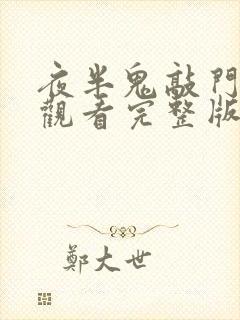 夜半鬼敲門
觀看完整版
鄭大世